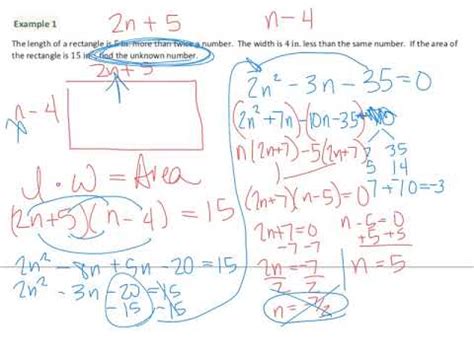 2n + 5
n - 4
Example 1
The length of a rectangle is 5 in. more than twice a number. The width is 4 in. less than the same number. If the area of
the rectangle is 15 in² find the unknown number.
2n + 5
n - 4
l · w = Area
(2n+5)(n-4) = 15
2n² - 8n + 5n - 20 = 15
2n² - 3n - 20 = 15
-15 -15
2n² - 3n - 35 = 0
(2n² + 7n) - (10n - 35)
n(2n+7) - 5(2n+7)
35
5 14
7 + -10 = -3
(2n+7)(n-5) = 0
2n+7=0
-7 -7
2n = -7
2 2
n = -7/2
n - 5 = 0
+5 +5
n = 5